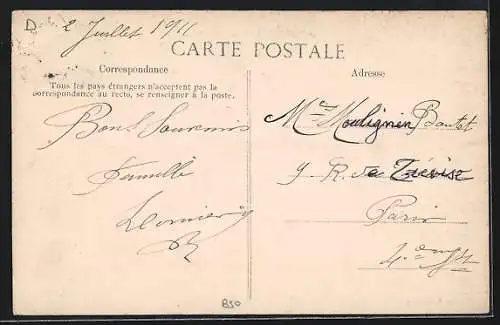 D
2 Juillet 1911
CARTE POSTALE
Correspondance
Tous les pays étrangers n'acceptent pas la
correspondance au recto, se renseigner à la poste.
Bons Souvenirs
Famille
Adresse
Me Moulignier
9 R. de Trévise
Paris
B50